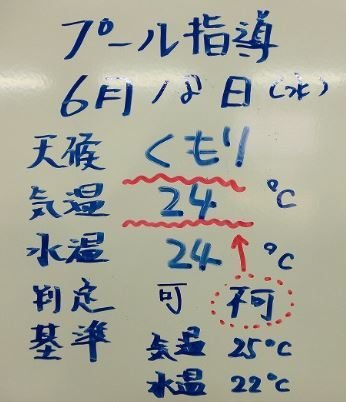 プール指導
6月18日(水)
天候 くもり
気温 24 ℃
水温 24 ℃
判定 可 不可
基準 気温 25℃
水温 22℃